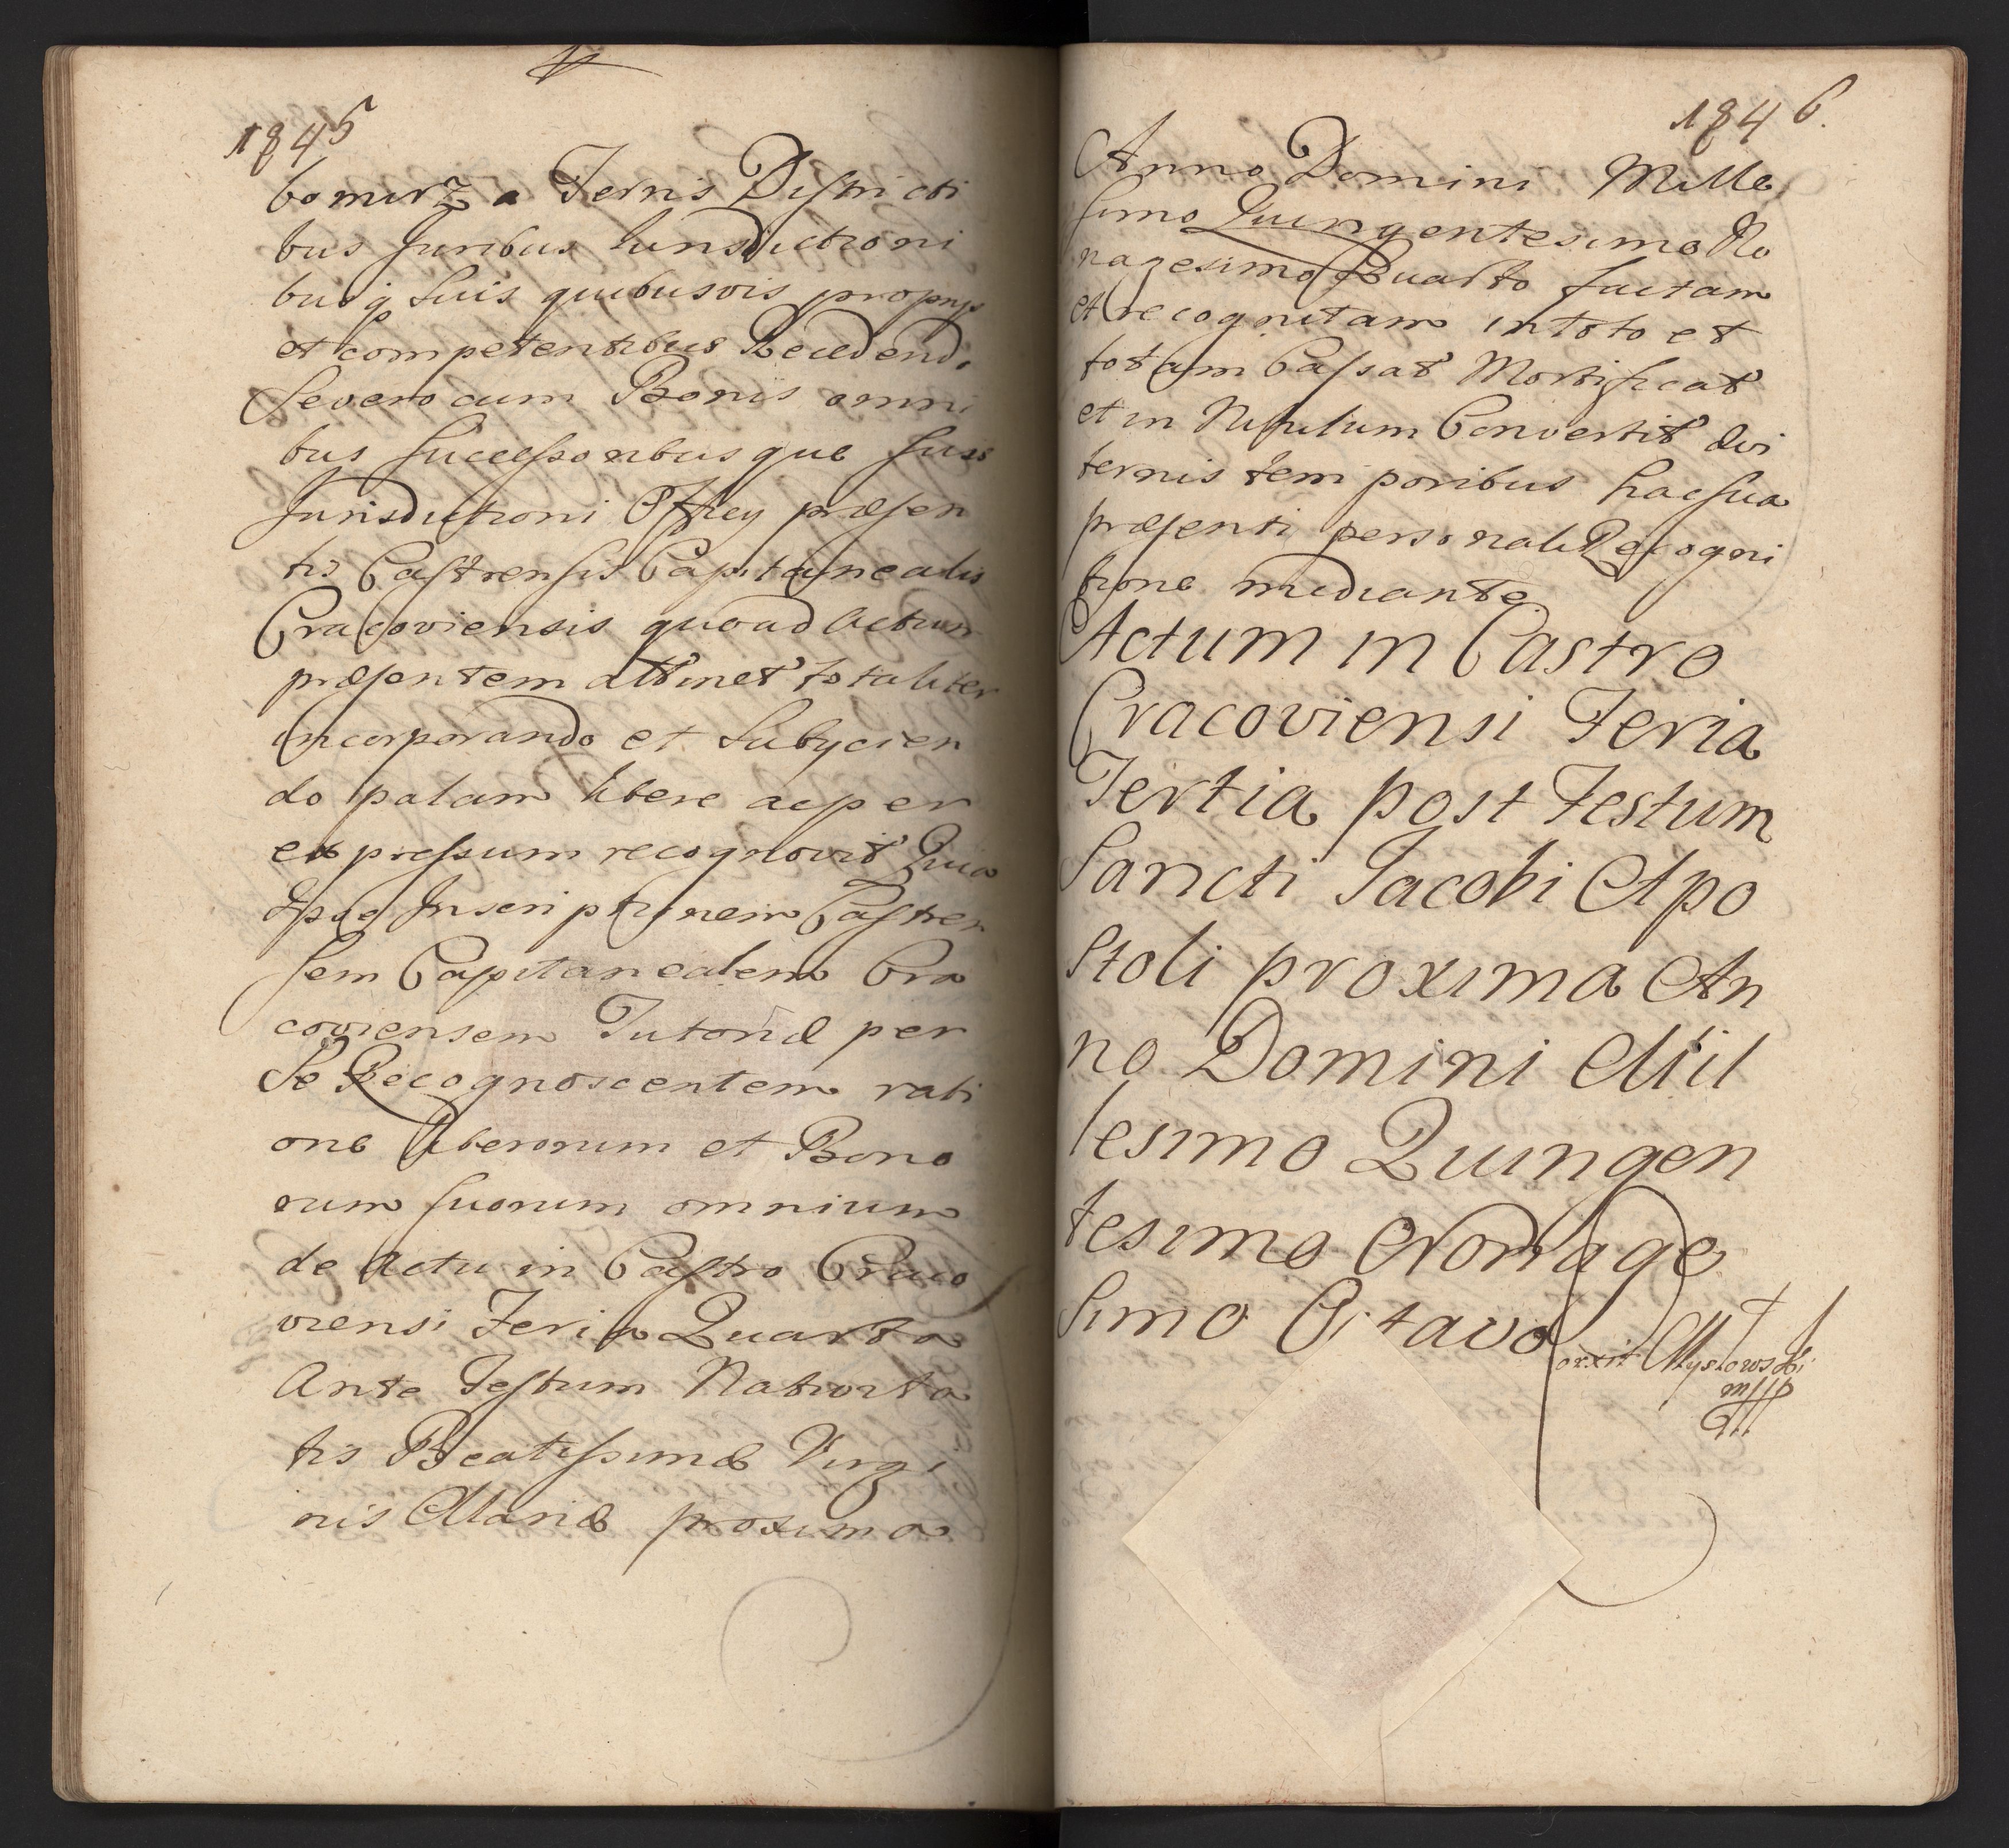 1845
bomirz a Terris Districti
bus Juribus Iurisdictioni
busq suis quibusvis proprys
et competentibus Recedendo
Seseno cum Bonis omni
bus Successoribusque suis
Jurisdictioni Offcy præsen
tis Castrensis Capitanealis
Cracoviensis quoad actum
præsentem attinet totaliter
incorporando et Subycien
do palam libere ac per
expressum recognovit Quia
Ipse Inscriptionem Castren
sem Capitanealem Cra
coviensem Tutoriæ per
Se Recognoscentem rati
one liberorum et Bono
rum suorum omnium
de Actu in Castro Craco
viensi Feria Quarta
Ante Festum Nativita
tis Beatissimæ Virgi
nis Mariæ proxima
1846.
Anno Domini Mille
simo Quingentesimo No
nagesimo Quarto factam
et recognitam in toto et
totam Cassat Mortificat
et in Nihilum Convertit Avi
ternis temporibus hac sua
præsenti personali Recogni
tione mediante
Actum in Castro
Cracoviensi Feria
Tertia post Festum
Sancti Jacobi Apo
stoli proxima An
no Domini Mil
lesimo Quingen
tesimo Nonage
simo Octavo
orxit Mysłowski
mpp